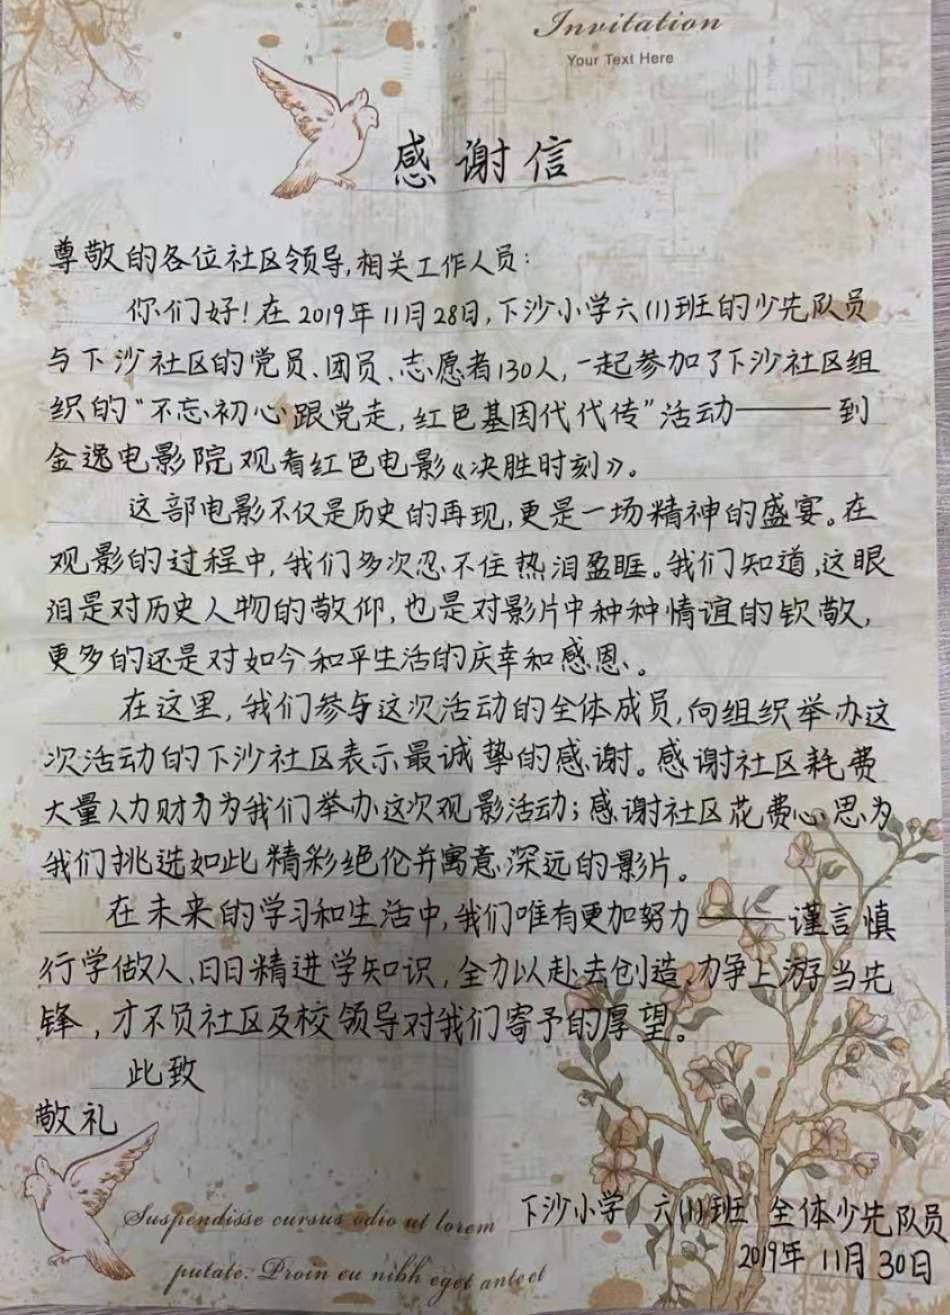 Invitation
Your Text Here
感谢信
尊敬的各位社区领导,相关工作人员:
你们好!在2019年11月28日,下沙小学六(1)班的少先队员
与下沙社区的党员、团员、志愿者130人,一起参加了下沙社区组
织的“不忘初心跟党走,红色基因代代传”活动——到
金逸电影院观看红色电影《决胜时刻》。
这部电影不仅是历史的再现,更是一场精神的盛宴。在
观影的过程中,我们多次忍不住热泪盈眶。我们知道,这眼
泪是对历史人物的敬仰,也是对影片中种种情谊的钦敬,
更多的还是对如今和平生活的庆幸和感恩、。
在这里,我们参与这次活动的全体成员,向组织举办这
次活动的下沙社区表示最诚挚的感谢。感谢社区耗费
大量人力财力为我们举办这次观影活动;感谢社区花费心思为
我们挑选如此精彩绝伦并寓意深远的影片。
在未来的学习和生活中,我们唯有更加努力——谨言慎
行学做人、日日精进学知识、全力以赴去创造、力争上游当先
锋,才不负社区及校领导对我们寄予的厚望。
此致
敬礼
Suspendisse cursus odio ut lorem
putate. Proin eu nibh eget ante et
下沙小学 六(1)班 全体少先队员
2019年 11月30日